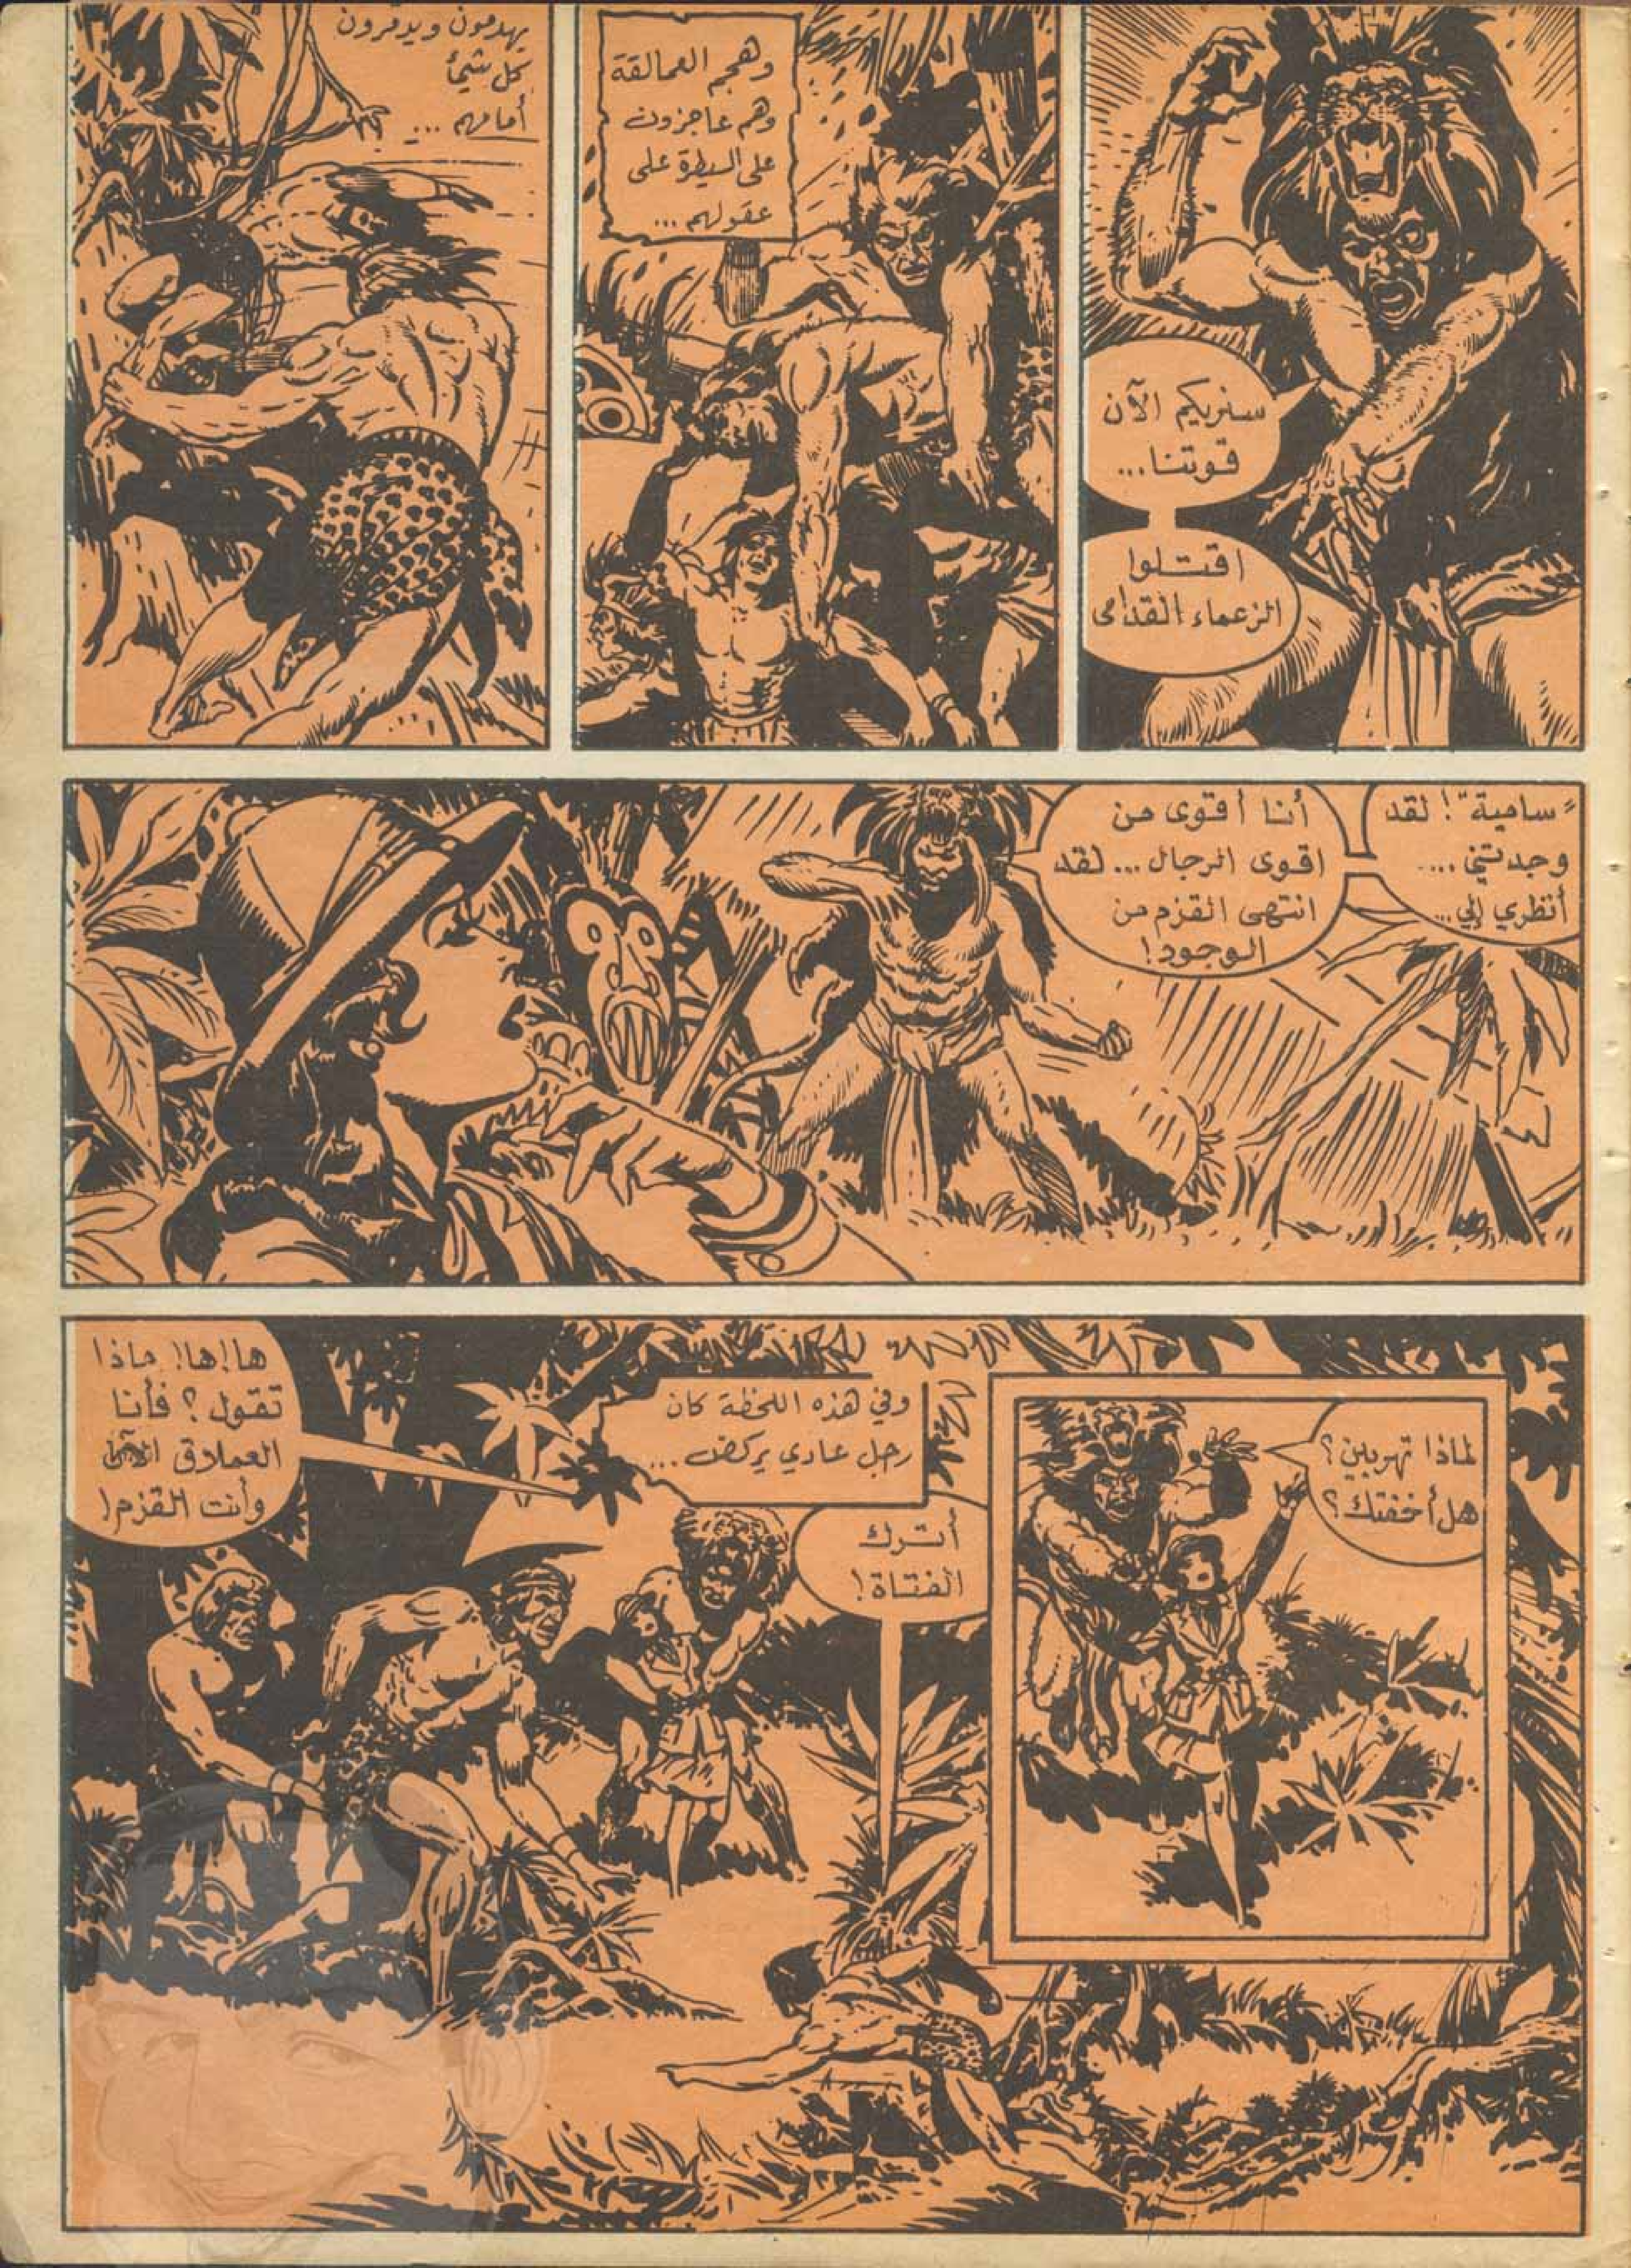 سنريكم الآن
قوتنا...
اقتلوا
الزعماء القدامى
وهجم العمالقة
وهم عاجزون
على السيطرة على
عقولهم...
يهدمون ويدمرون
كل شيئ
أمامهم ...
"سامية"! لقد
وجدتني ...
أنظري إلي...
أنا أقوى من
اقوى الرجال... لقد
انتهى القزم من
الوجود!
لماذا تهربين؟
هل أخفتك؟
وفي هذه اللحظة كان
رجل عادي يركض...
أترك
الفتاة!
ها!ها! ماذا
تقول؟ فأنا
العملاق الآن
وأنت القزم!